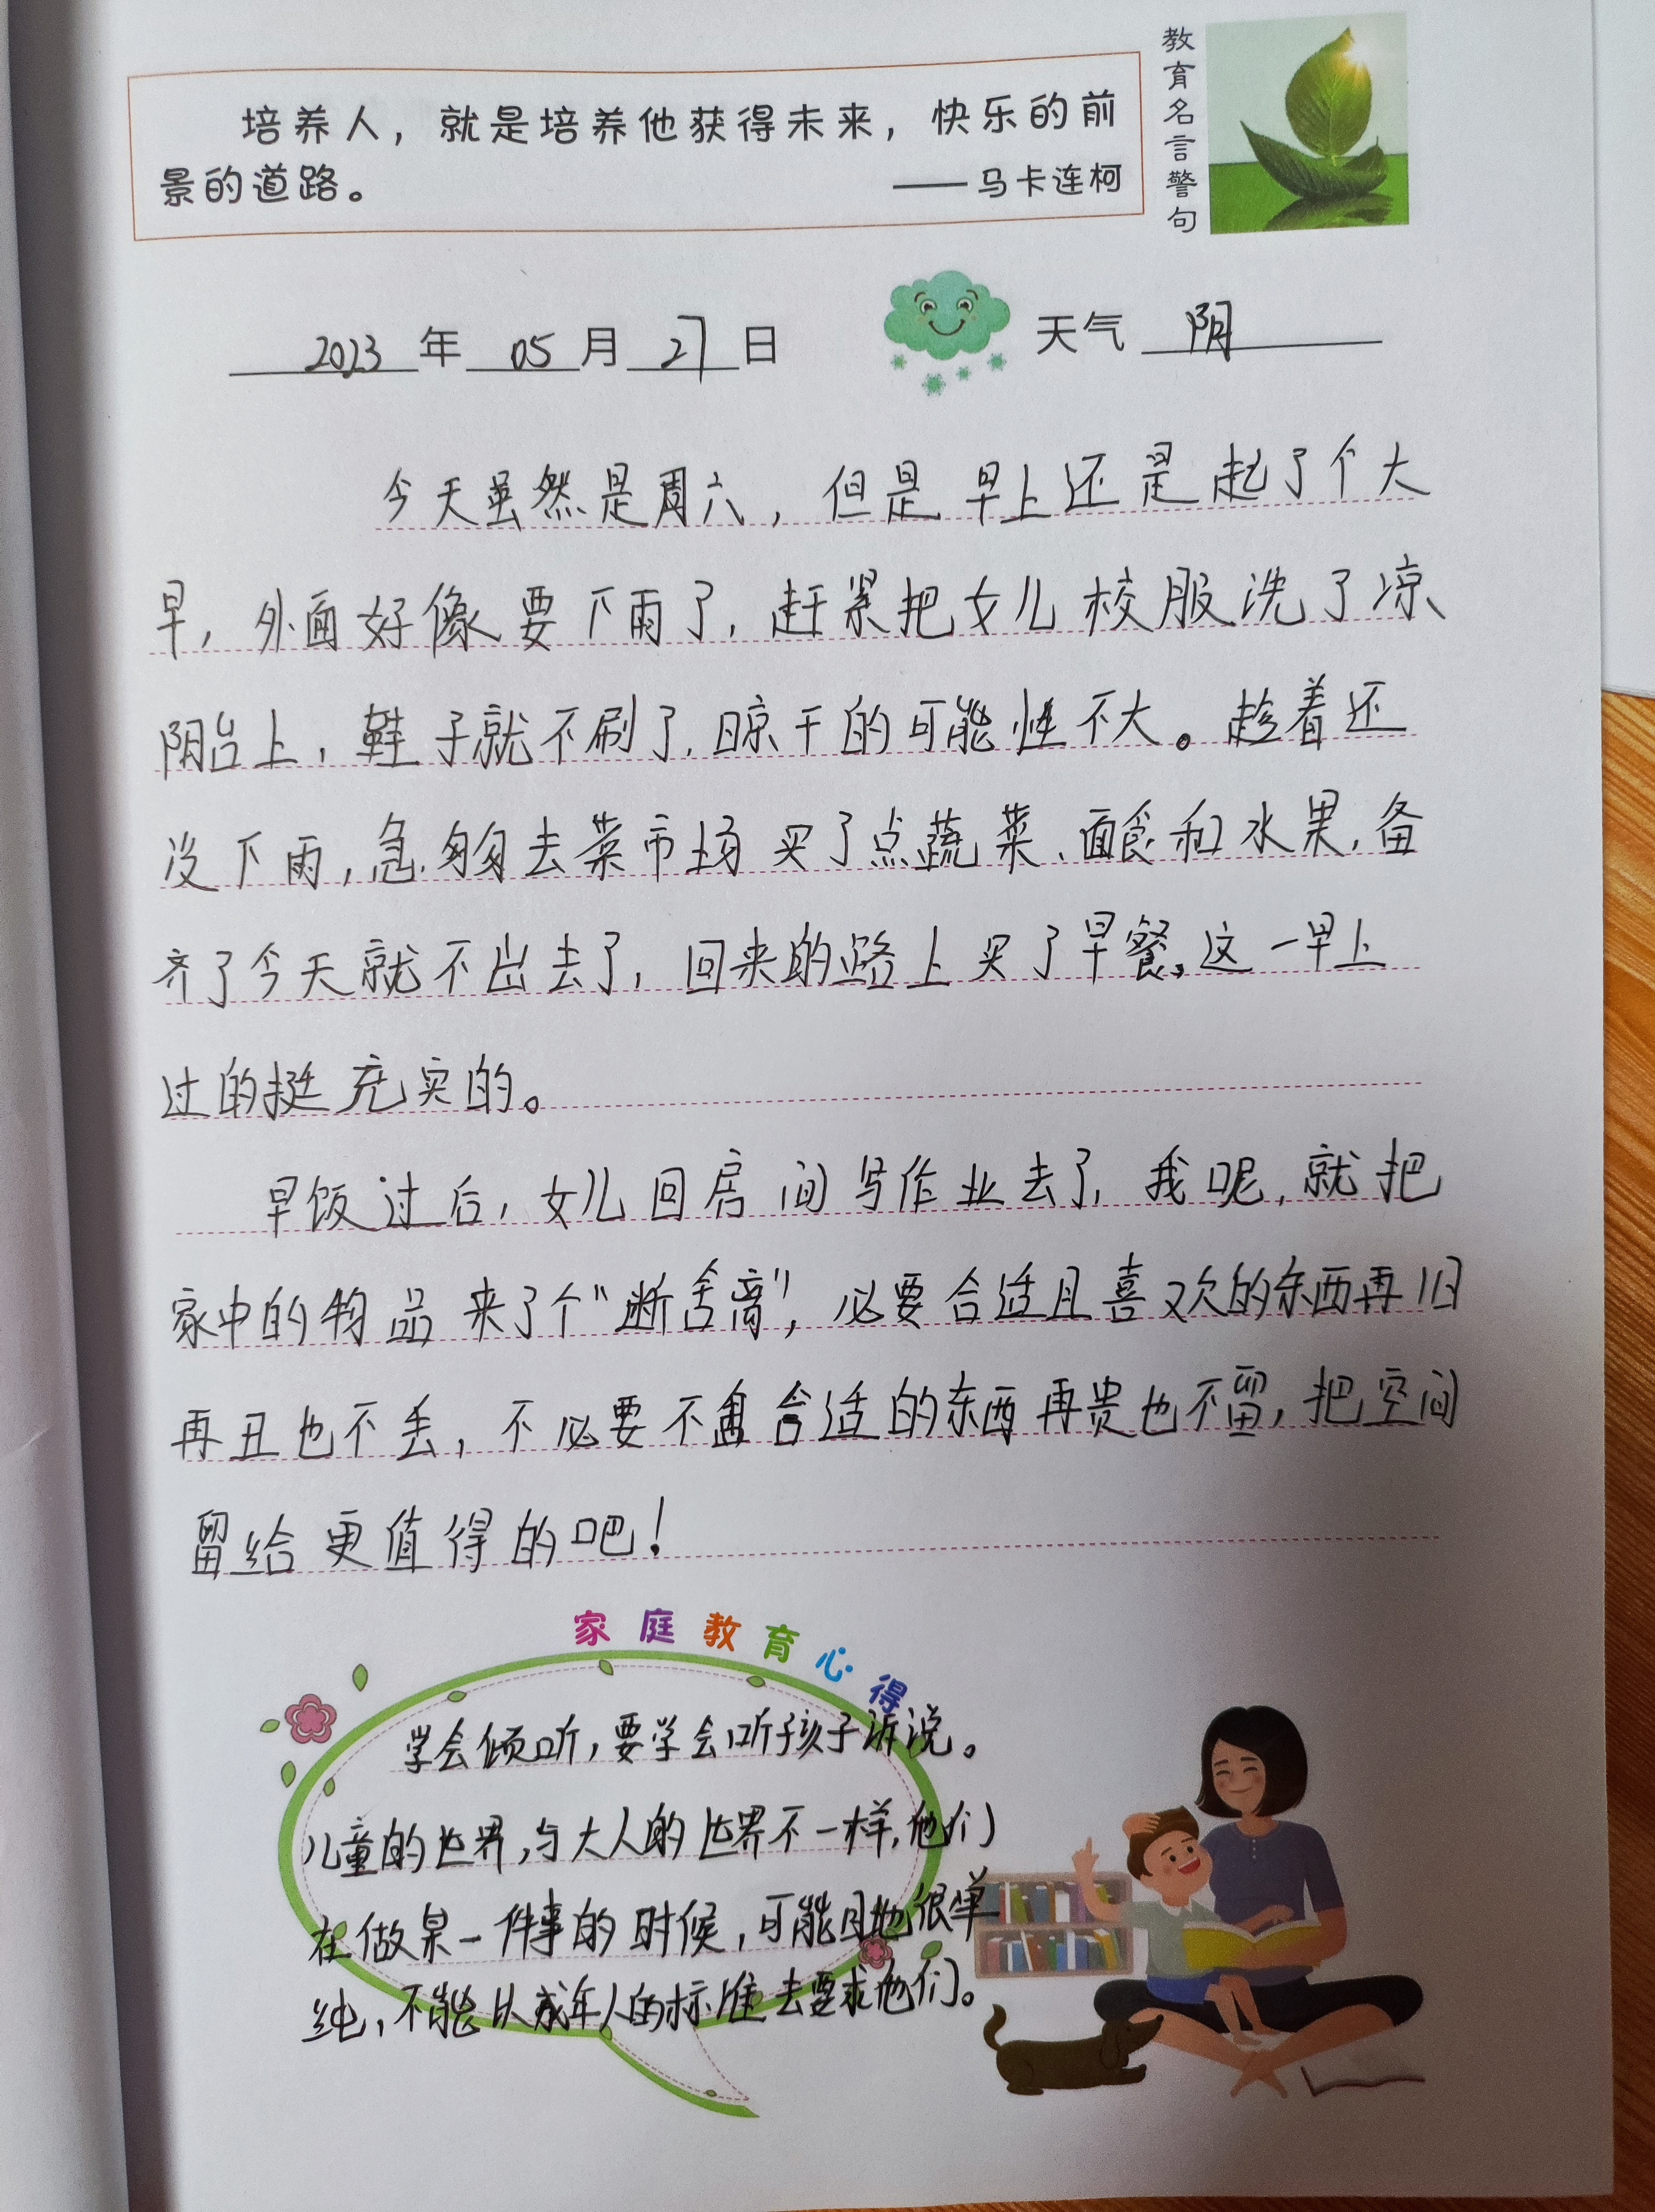 培养人，就是培养他获得未来，快乐的前
景的道路。 ——马卡连柯
教育名言警句
2023年05月27日 天气 阴
今天虽然是周六，但是早上还是起了个大
早，外面好像要下雨了，赶紧把女儿校服洗了凉
阳台上，鞋子就不刷了，晾干的可能性不大。趁着还
没下雨，急匆匆去菜市场买了点蔬菜、面食和水果，备
齐了今天就不出去了，回来的路上买了早餐，这一早上
过的挺充实的。
早饭过后，女儿回房间写作业去了，我呢，就把
家中的物品来了个“断舍离”，必要合适且喜欢的东西再旧
再丑也不丢，不必要不合适的东西再贵也不留，把空间
留给更值得的吧！
家庭教育心得
学会倾听，要学会听孩子诉说。
儿童的世界，与大人的世界不一样，他们
在做某一件事的时候，可能目地很单
纯，不能以成年人的标准去要求他们。